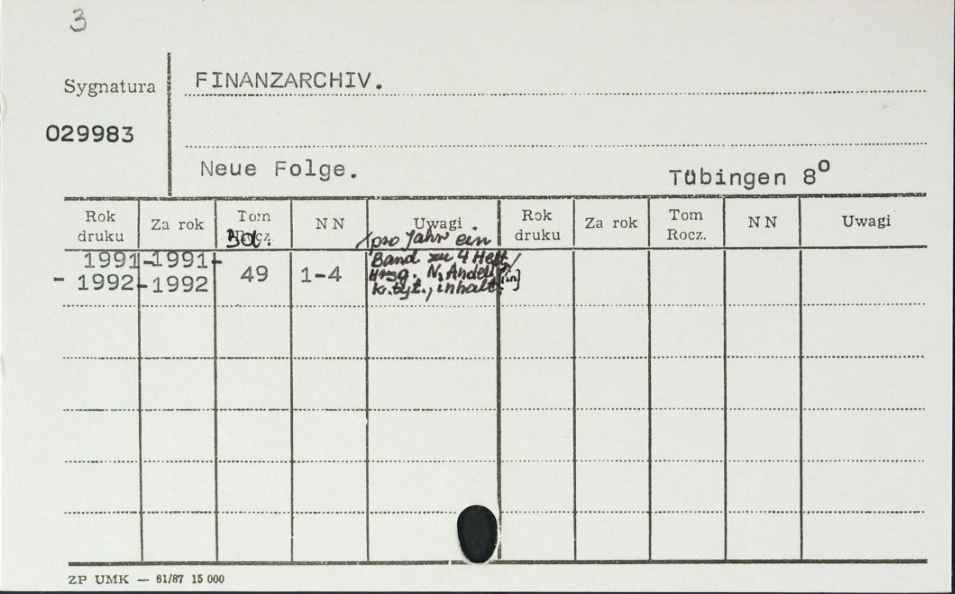 3
Sygnatura FINANZARCHIV.
029983
Neue Folge. Tübingen 8º
Rok druku Za rok Tom Rocz. N N Uwagi Rok druku Za rok Tom Rocz. N N Uwagi
Bd. /pro Jahr ein
1991 -1991- Band zu 4 Heft/
- 1992 -1992 49 1-4 Hrsg. N. Andel
k. tyt., inhalt. [in]
ZP UMK — 61/87 15 000